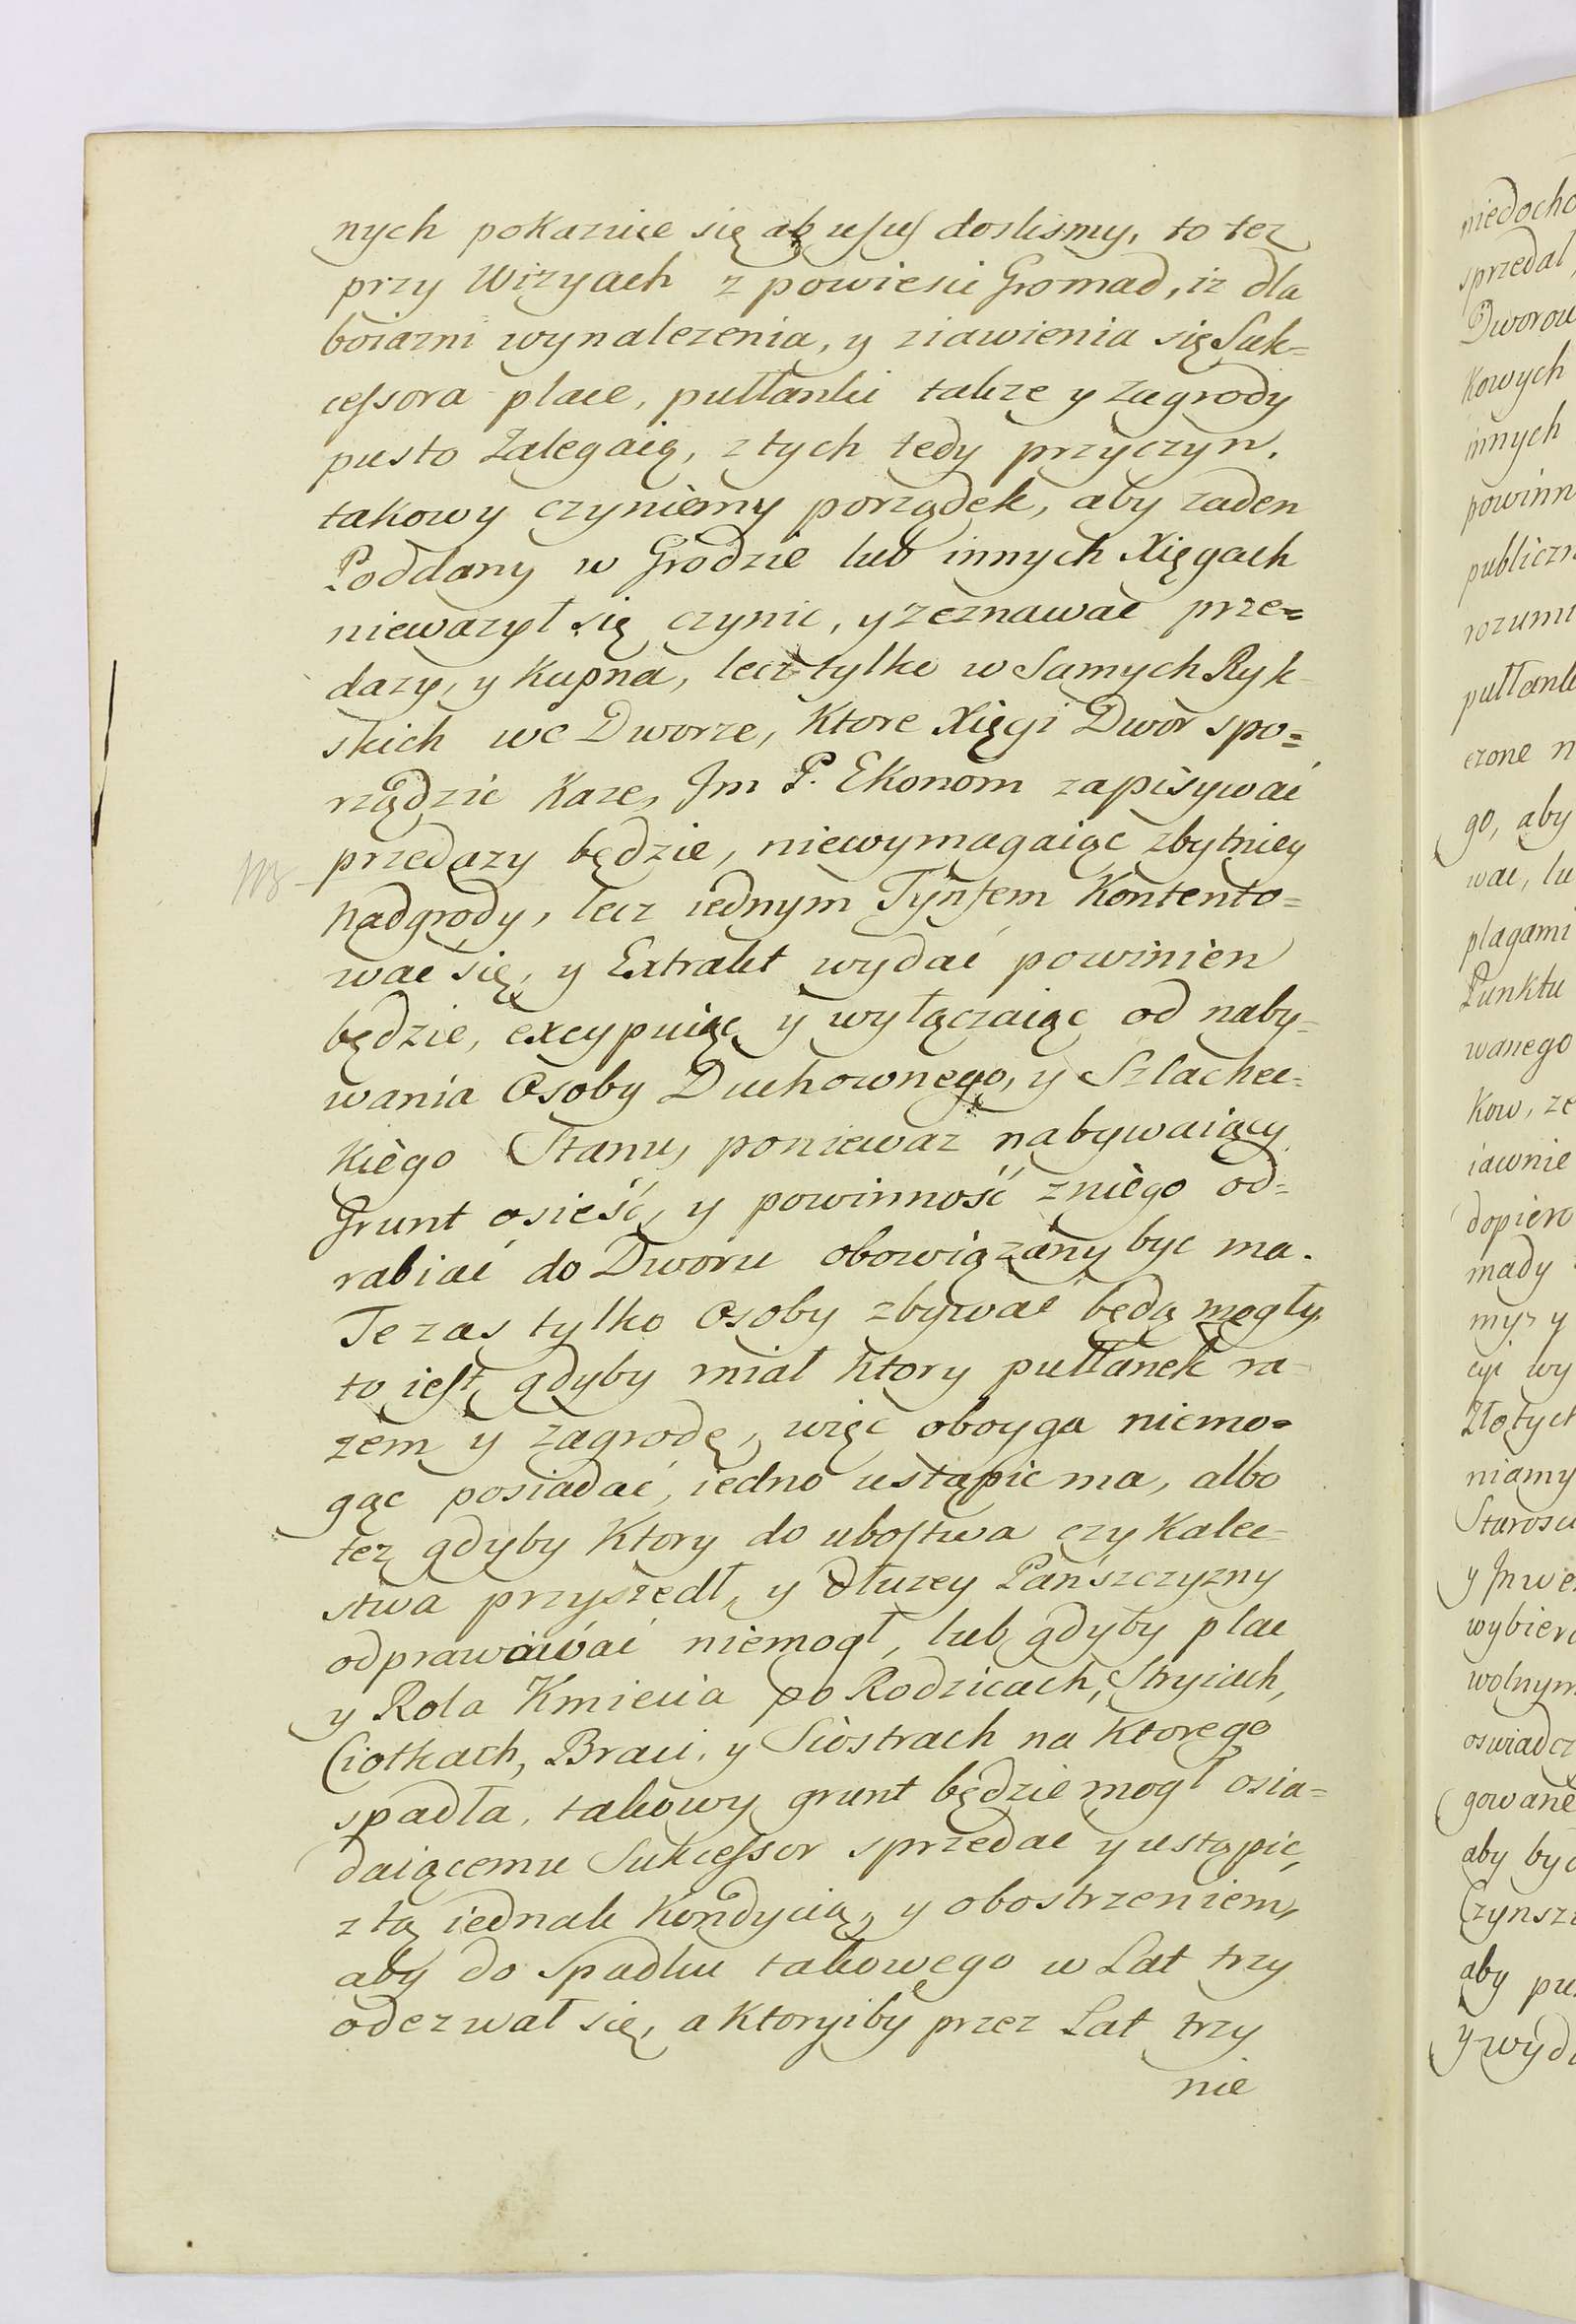 nych pokazuie się abusus doslismy, to tez
przy Wizyach z powiesci Gromad, iz dla
boiazni wynalezenia, y ziawienia się Suk=
cessora place, pułłanki takze y Zagrody
pusto Zalegaią, z tych tedy przyczyn,
takowy czyniemy porządek, aby zaden
Poddany w Grodzie lub innych Xięgach
niewazył się czynic, y zeznawac prze=
dazy, y Kupna, lecz tylko w Samych Ryk
skich we Dworze, Ktore Xięgi Dwor spo=
rządzic Kaze, Jm P. Ekonom zapisywać
przedazy będzie, niewymagaiąc zbytniey
nadgrody, lecz iednym Tynfem Kontento=
wac się, y Extrakt wydać powinien
będzie, excypuiąc y wyłączaiąc od naby=
wania Osoby Duchownego, y Szlachec=
Kiego Stanu, poniewaz nabywaiący
Grunt osieść, y powinność z niego od=
rabiać do Dworu obowiązany byc ma.
Te zas tylko Osoby zbywac będą mogły
to iest, gdyby miał Ktory pułłanek ra-
zem y Zagrodę, więc oboyga niemo=
gąc posiadać, iedno ustąpic ma, albo
tez gdyby Ktory do ubostwa czy Kalec=
stwa przyszedł, y dłuzey Pańszczyzny
odprawawać niemogł, lub gdyby plac
y Rola Kmiecia po Rodzicach, Stryiach,
Ciotkach, Braci, y Siostrach na Ktorego
spadła, takowy grunt będzie mogł osia=
daiącemu Sukcessor sprzedac y ustąpić,
z tą iednak Kondycią, y obostrzeniem,
aby do spadku takowego w Lat trzy
odezwał się, a Ktoryiby przez Lat trzy
nie
niedocho
sprzedał,
Dworow
Kowych
innych
powinn
publiczn
rozumi
pułłank
czone n
go, aby
wac, lu
plagami
Punktu
wanego
Kow, ze
iawnie
dopiero
mady
my, y
cyi wy
Złotych
niamy
Starosci
y Inwe
wybiera
wolnym
oswiadcz
gowane
aby byc
Czynsz
aby pu
y wyda